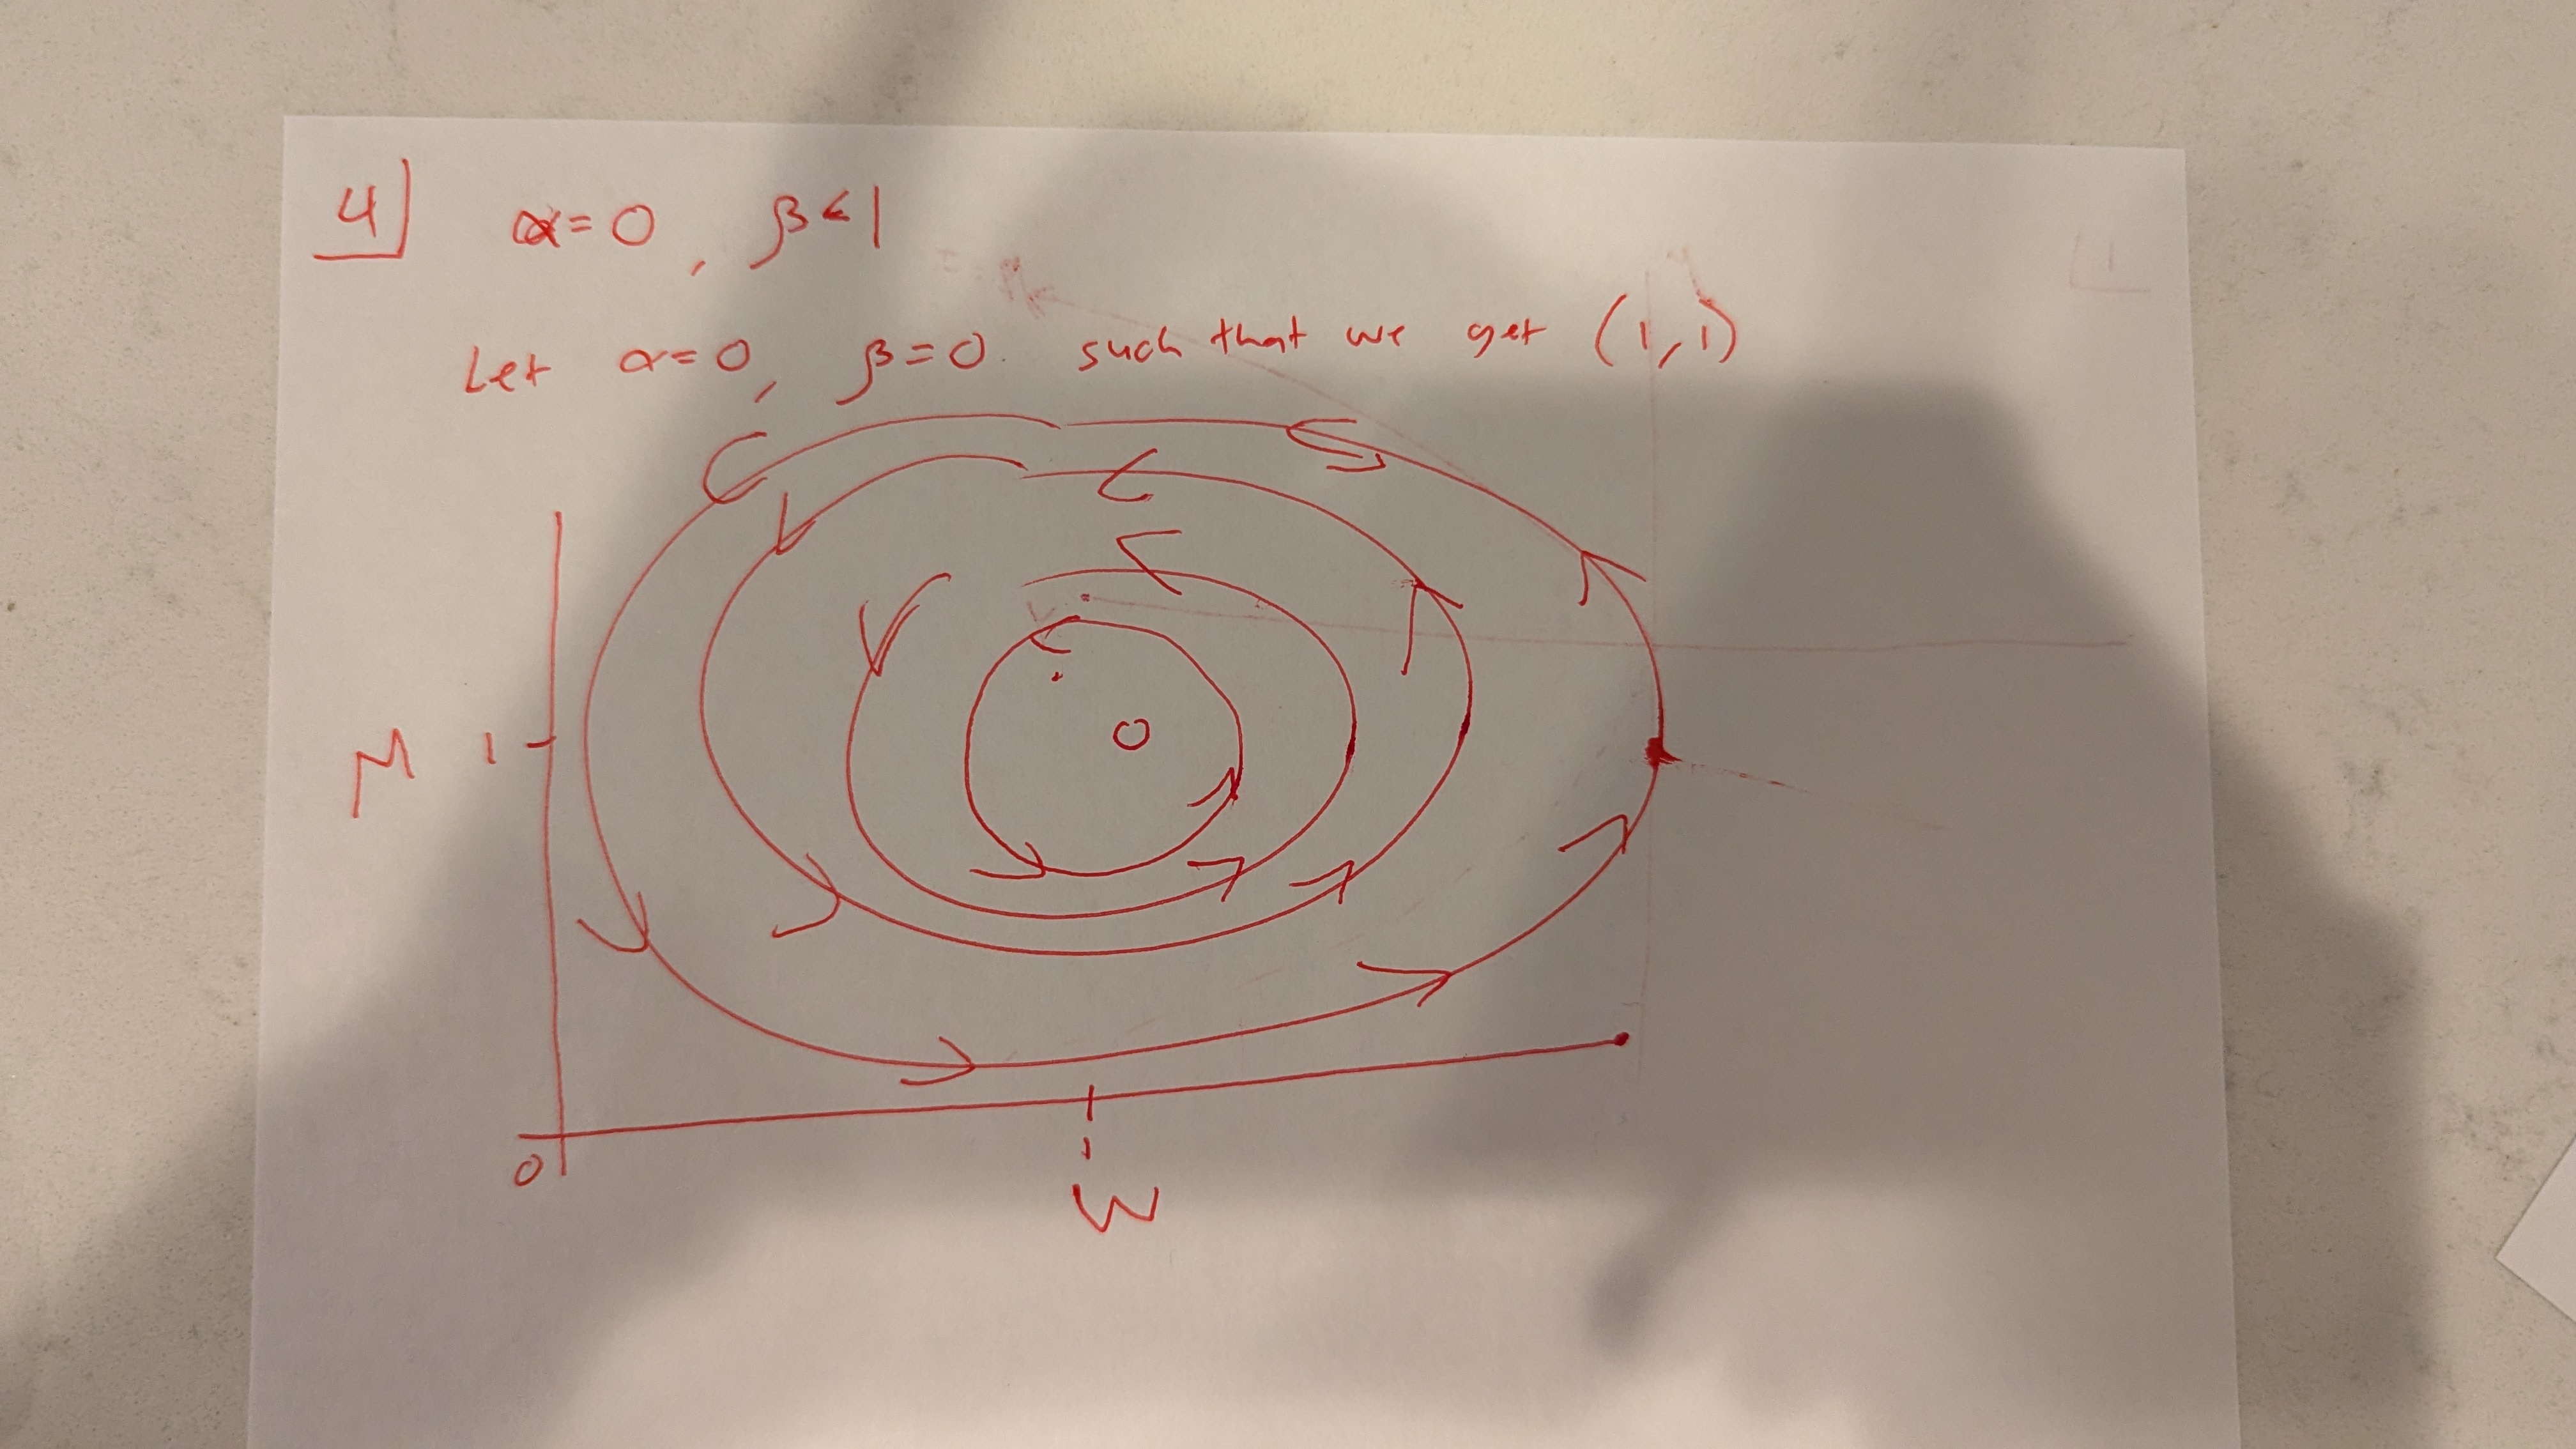 4 α=0, β<1
Let α=0, β=0. such that we get (1,1)
M 1
0
1
W